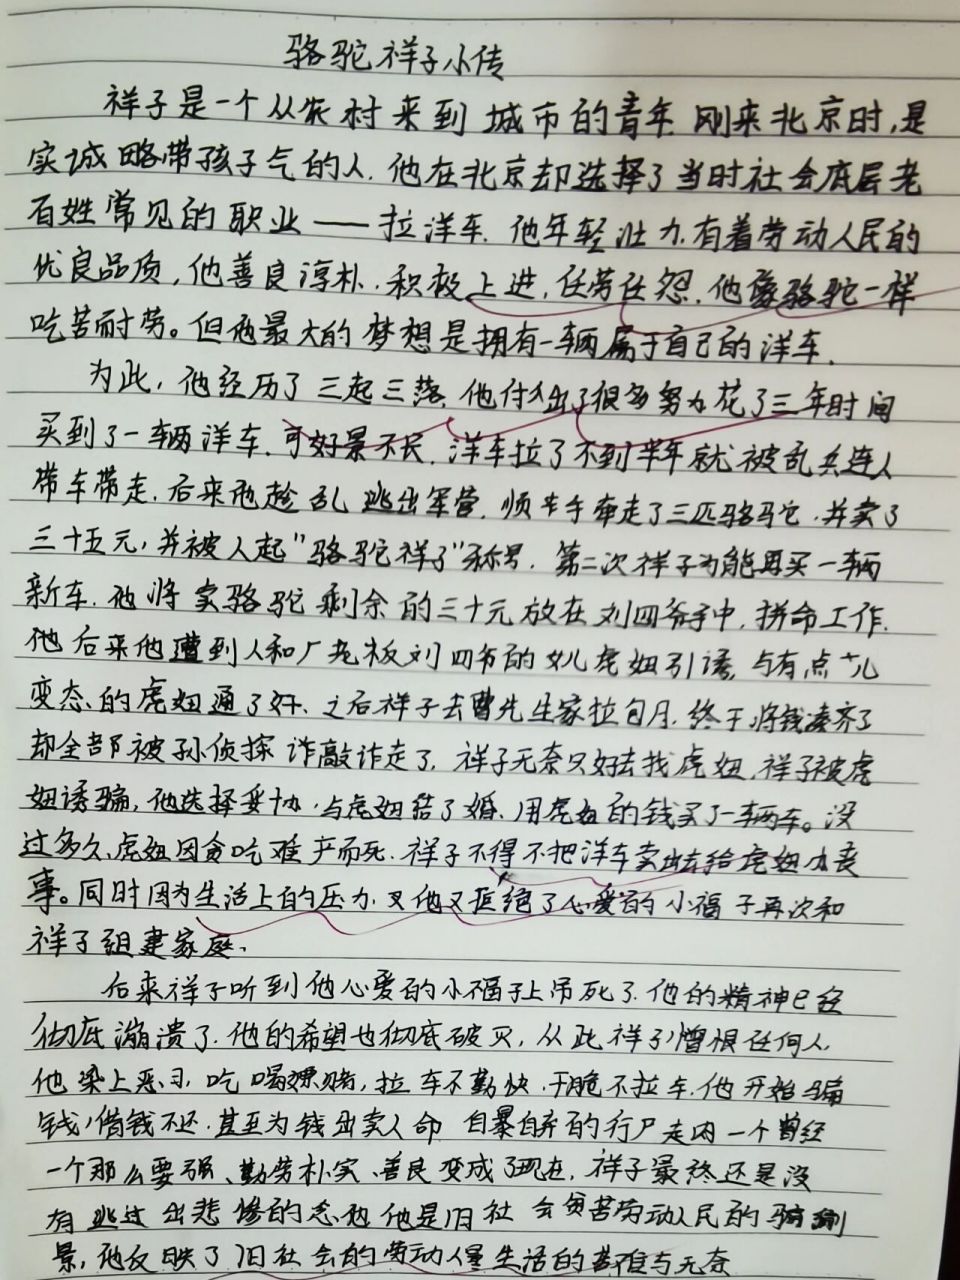 骆驼祥子小传
祥子是一个从农村来到城市的青年 刚来北京时,是
实诚略带孩子气的人. 他在北京却选择了当时社会底层老
百姓常见的职业——拉洋车. 他年轻壮力.有着劳动人民的
优良品质,他善良淳朴.积极上进,任劳任怨.他像骆驼一样
吃苦耐劳。但他最大的梦想是拥有一辆属于自己的洋车.
为此,他经历了三起三落.他付出了很多努力花了三年时间
买到了一辆洋车.可好景不长.洋车拉了不到半年就被乱兵连人
带车带走.后来他趁乱 逃出军营.顺手牵走了三匹骆驼.并卖了
三十五元,并被人起"骆驼祥子"称号.第二次祥子为能再买一辆
新车.他将卖骆驼剩余的三十元放在刘四爷手中,拼命工作.
他后来他遭到人和厂老板刘四爷的女儿虎妞引诱,与有点儿
变态的虎妞通了奸、之后祥子去曹先生家拉包月.终于将钱凑齐了
却全部被孙侦探诈敲诈走了.祥子无奈只好去找虎妞.祥子被虎
妞诱骗,他选择妥协.与虎妞结了婚.用虎妞的钱买了一辆车。没
过多久,虎妞因贪吃难产而死.祥子不得不把洋车卖出去给虎妞办丧
事。同时因为生活上的压力.又他又拒绝了心爱的小福子再次和
祥子组建家庭.
后来祥子听到他心爱的小福子上吊死了.他的精神已经
彻底溃了.他的希望也彻底破灭,从此祥子憎恨任何人.
他染上恶习,吃喝嫖赌,拉车不勤快.干脆不拉车.他开始骗
钱,借钱不还.甚至为钱出卖人命 自暴自弃的行尸走肉 一个曾经
一个那么要强、勤劳朴实、善良 变成了现在.祥子最终还是没
有逃过出悲惨的 他是旧社会贫苦劳动人民的
景,他反映了旧社会的劳动人生活的苦难与无奈